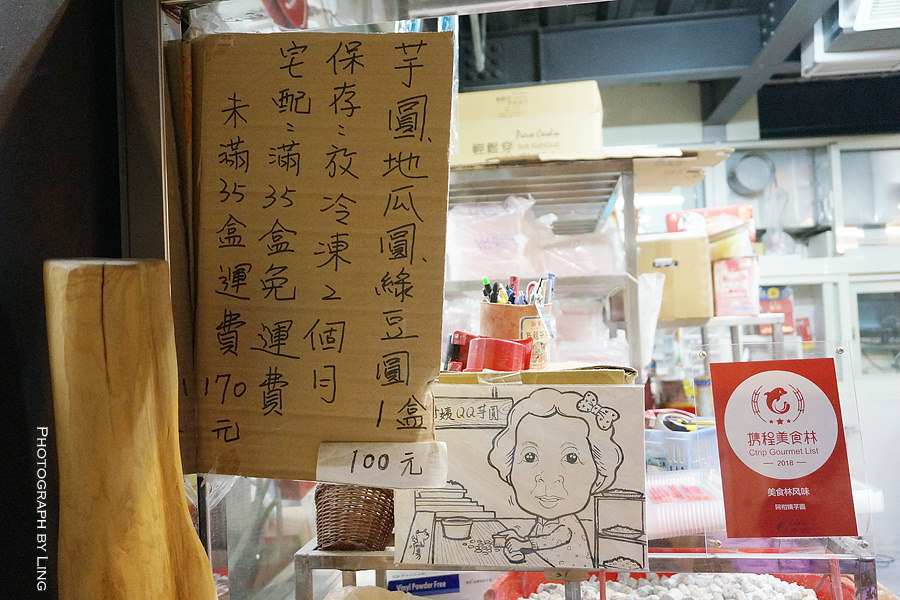 芋圓、地瓜圓、綠豆圓1盒
100元
保存:放冷凍2個月
宅配:滿35盒免運費
未滿35盒運費170元
姨QQ芋圓
Pierre Cardin
輕鬆穿
携程美食林
Ctrip Gourmet List
2018
美食林风味
阿柑姨芋圆
Vinyl Powder Free
PHOTOGRAPH BY LING